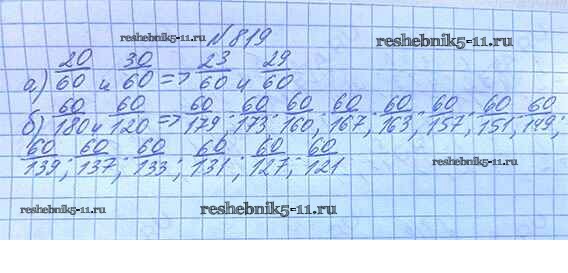 №819
reshebnik5-11.ru reshebnik5-11.ru
а) 20/60 и 30/60 => 23/60 и 29/60
б) 60/180 и 60/120 => 60/179; 60/173; 60/160; 60/167; 60/163; 60/157; 60/151; 60/149;
60/139; 60/137; 60/133; 60/131; 60/127; 60/121
reshebnik5-11.ru
reshebnik5-11.ru reshebnik5-11.ru